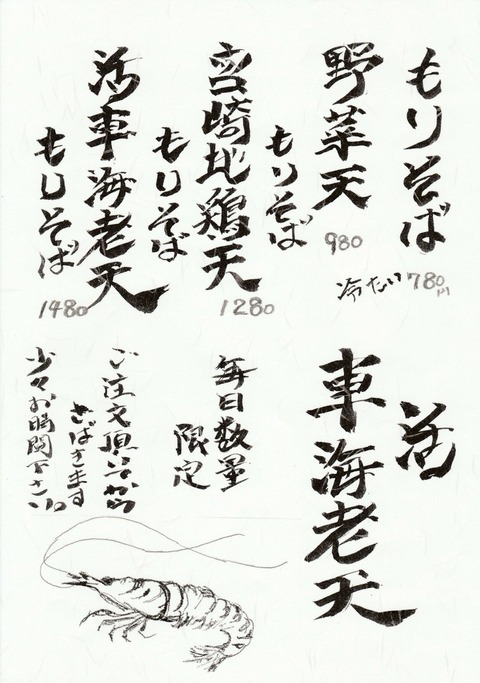 もりそば
冷たい 780円
野菜天
もりそば
980
宮崎地鶏天
もりそば
1280
活車海老天
もりそば
1480
活
車海老天
毎日数量
限定
ご注文頂いてから
さばきます
少々お時間下さい